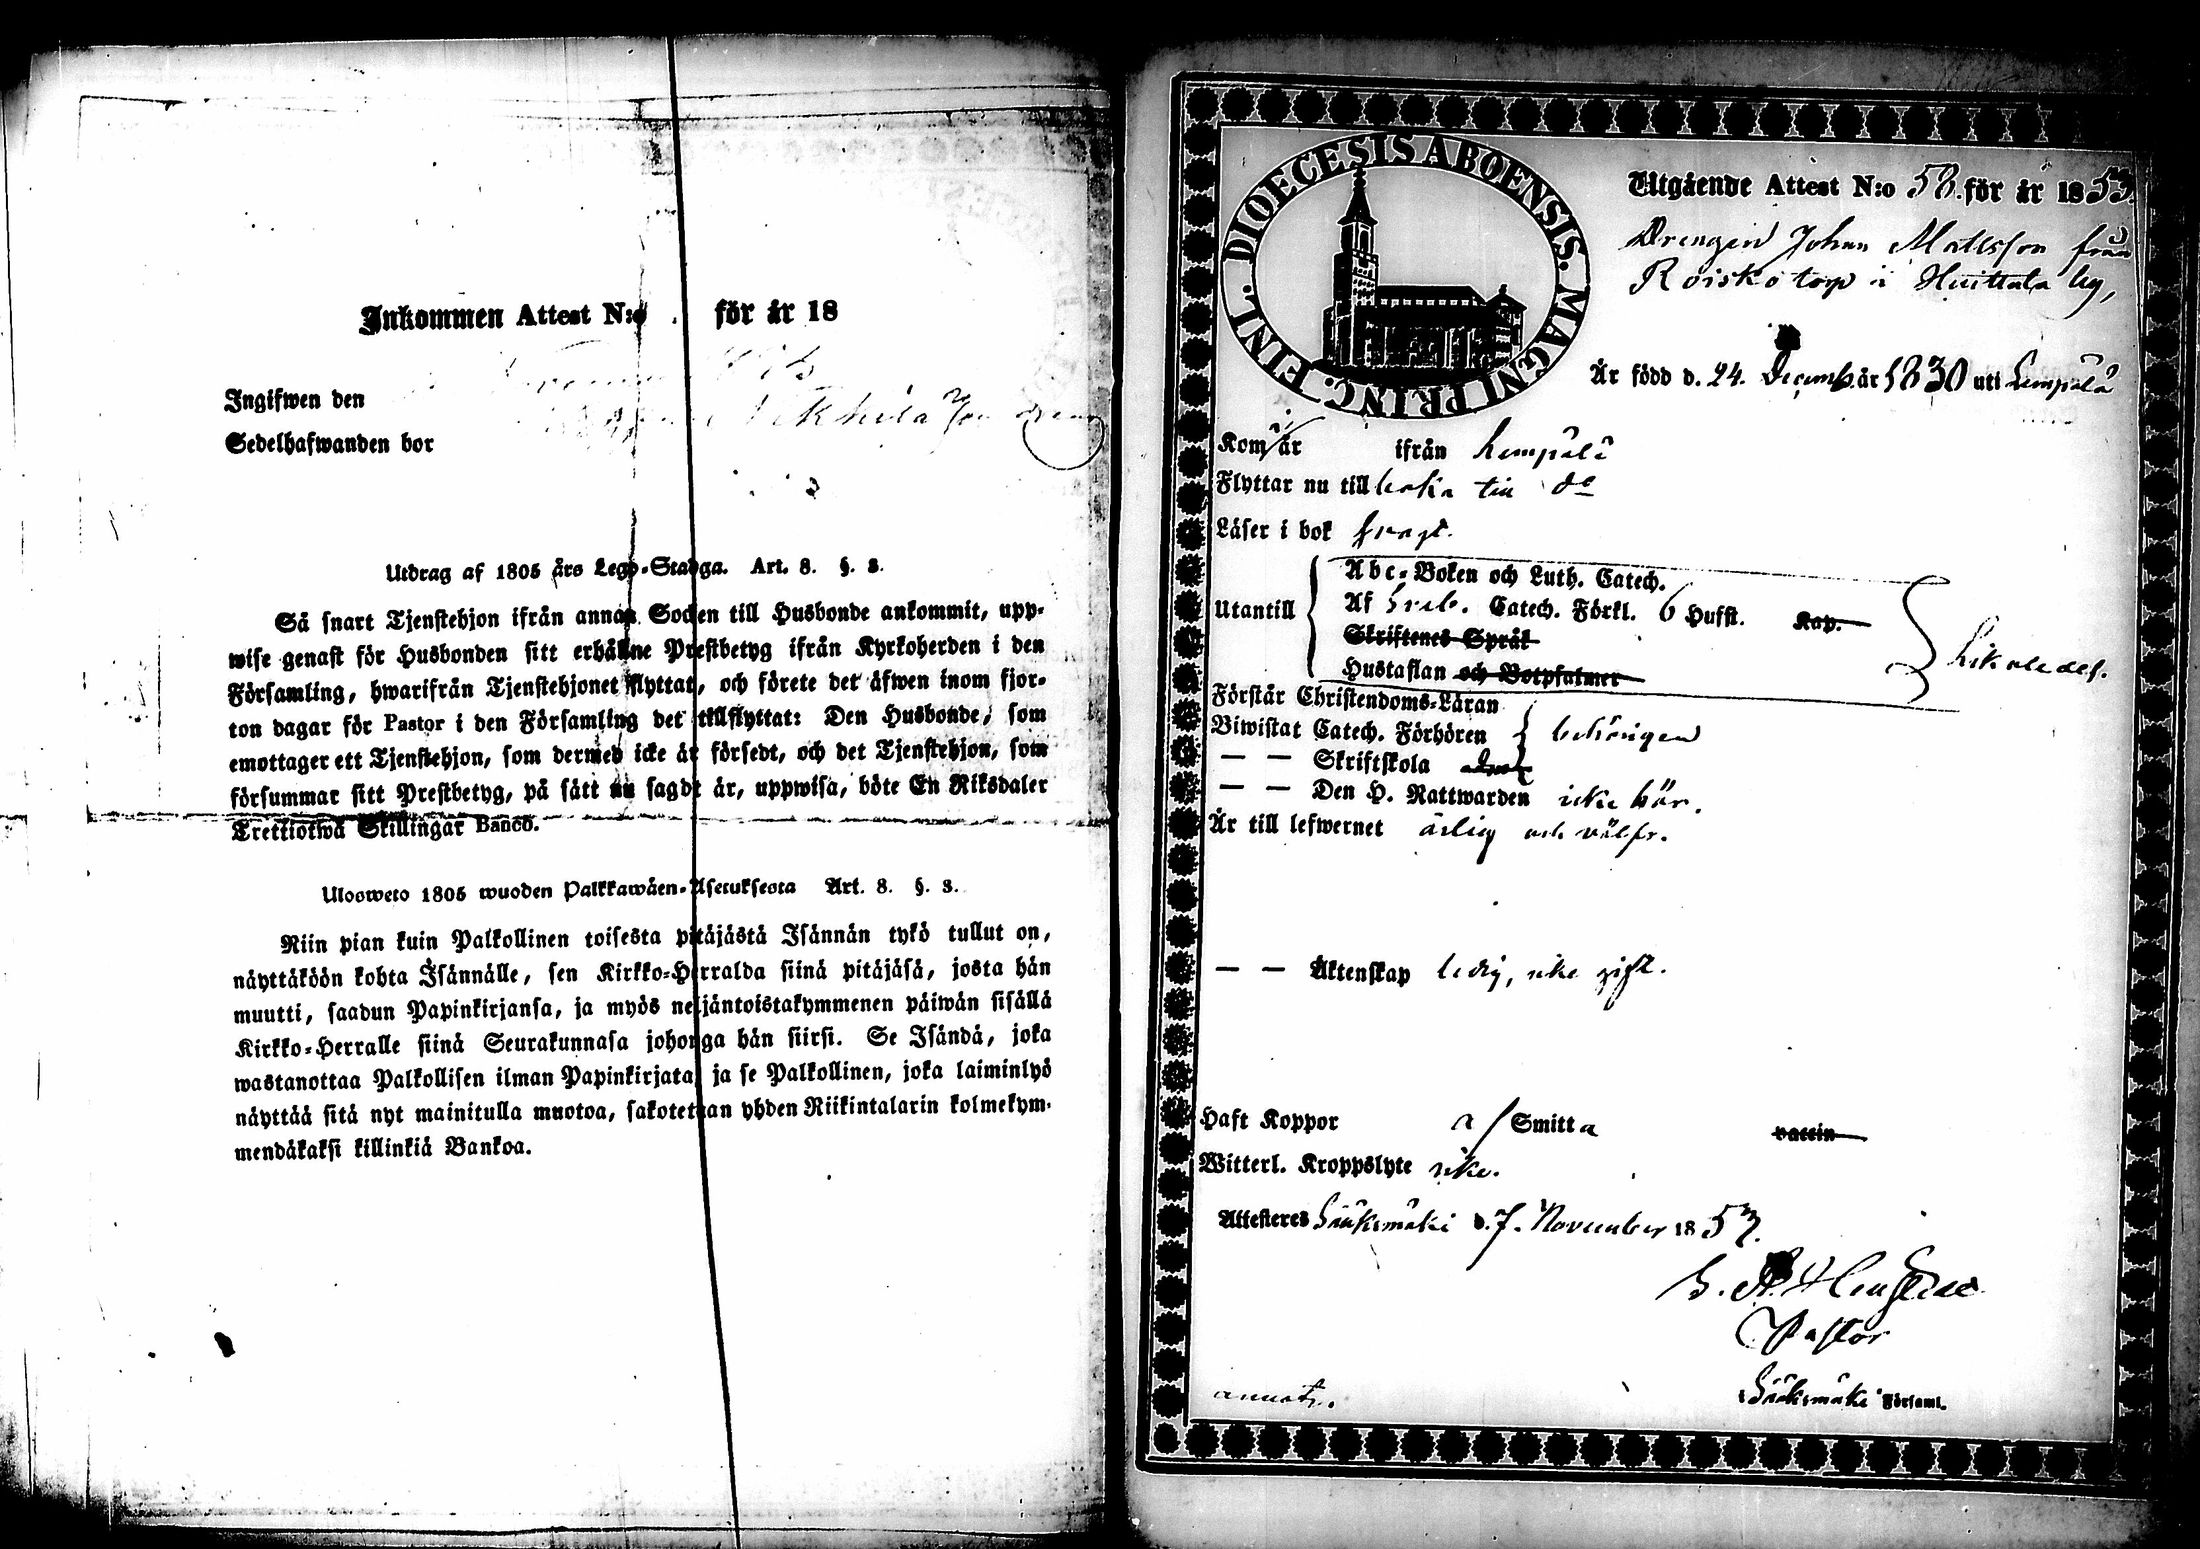 Inkommen Attest N:o för år 18
Ingifwen den
Sedelhafwanden bor
Utdrag af 1805 års Lego-Stadga. Art. 8. §. 3.
Så snart Tjenstehjon ifrån annan Socken till Husbonde ankommit, upp-
wise genast för Husbonden sitt erhållne Prestbetyg ifrån Kyrkoherden i den
Församling, hwarifrån Tjenstehjonet flyttat, och förete det äfwen inom fjor-
ton dagar för Pastor i den Församling det tillflyttat: Den Husbonde, som
emottager ett Tjenstehjon, som dermed icke är försedt, och det Tjenstehjon, som
försummar sitt Prestbetyg, på sätt nu sagdt är, uppwisa, böte En Riksdaler
Trettiotwå Skillingar Banco.
Ulosweto 1805 wuoden Palkkawäen-Asetuksesta Art. 8. §. 3.
Niin pian kuin Palkollinen toisesta pitäjästä Isännän tykö tullut on,
näyttäköön kohta Isännälle, sen Kirkko-Herralda siinä pitäjäsä, josta hän
muutti, saadun Papinkirjansa, ja myös neljäntoistakymmenen päiwän sisällä
Kirkko-Herralle siinä Seurakunnasa johonga hän siirsi. Se Isändä, joka
wastanottaa Palkollisen ilman Papinkirjata, ja se Palkollinen, joka laiminlyö
näyttää sitä nyt mainitulla muotoa, sakotetaan yhden Riikintalarin kolmekym-
mendäkaksi killinkiä Bankoa.
DIOECESIS ABOENSIS. MAGNI PRINC. FINL.
Utgående Attest N:o 58. för år 1853.
Drengen Johan Mattsson från
Roisko torp i Huittula by,
Är född d. 24. Decemb. år 1830 uti Lempälä
Kom år ifrån Lempälä
Flyttar nu till baka till do
Läser i bok svagt.
Abc-Boken och Luth. Catech.
Utantill Af Sveb. Catech. Förkl. 6 Hufst. Kap.
Skriftenes Språk
Hustaflan och Botpsalmer
likaledes.
Förstår Christendoms-Läran
Biwistat Catech. Förhören behörigen
— — Skriftskola
— — Den H. Nattwarden icke här.
Är till lefwernet ärlig och välfr.
— — Äktenskap ledig, icke gift.
Haft Koppor a / Smitta vaccin
Witterl. Kroppslyte icke.
Attesteres Sääksmäki d. 7. November 1853.
Pastor
Sääksmäki Församl.
annot.